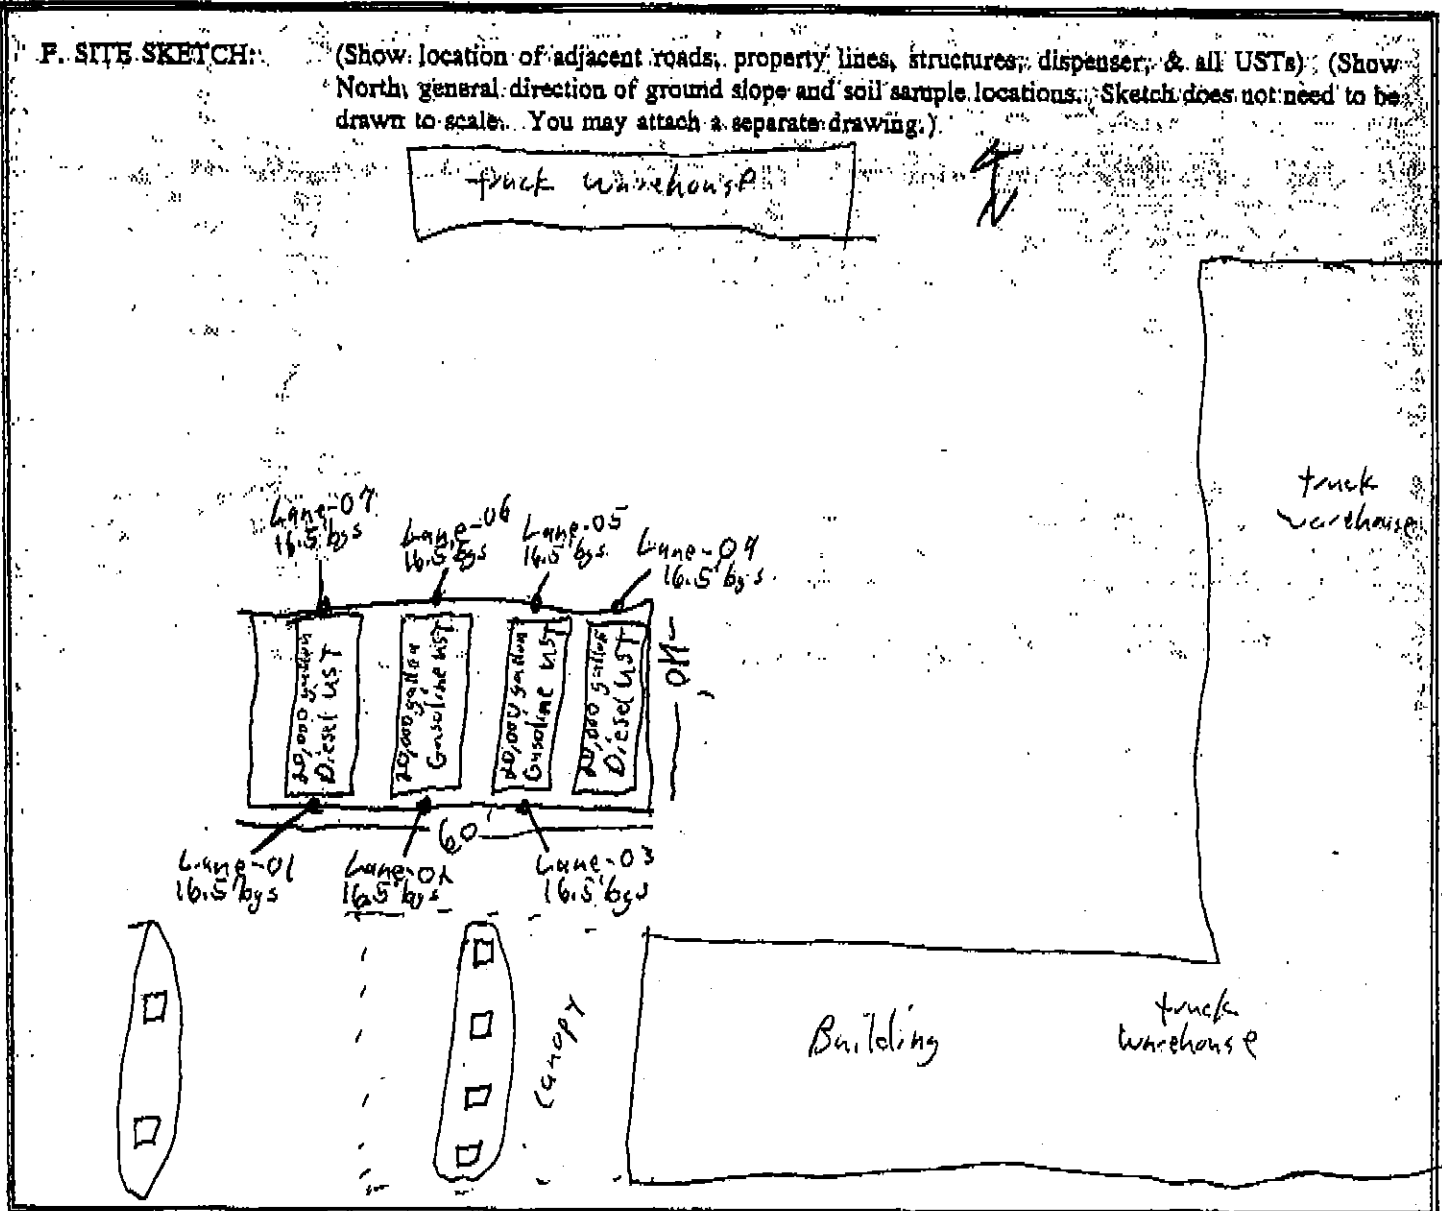 F. SITE SKETCH: (Show location of adjacent roads, property lines, structures, dispenser, & all USTs) (Show
North, general direction of ground slope and soil sample locations. Sketch does not need to be
drawn to scale. You may attach a separate drawing.)
truck warehouse
N
truck
warehouse
Lane-07
16.5' bgs
Lane-06
16.5' bgs
Lane-05
16.5' bgs
Lane-04
16.5' bgs
20,000 gallon
Diesel UST
20,000 gallon
Gasoline UST
20,000 gallon
Gasoline UST
20,000 gallon
Diesel UST
40'
60'
Lane-01
16.5' bgs
Lane-02
16.5' bgs
Lane-03
16.5' bgs
Canopy
Building
truck
warehouse